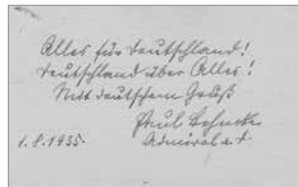 Alles für Deutschland!
Deutschland über Alles!
Mit deutschem Gruß
Paul Behncke
1.8.1935. Admiral a. D.